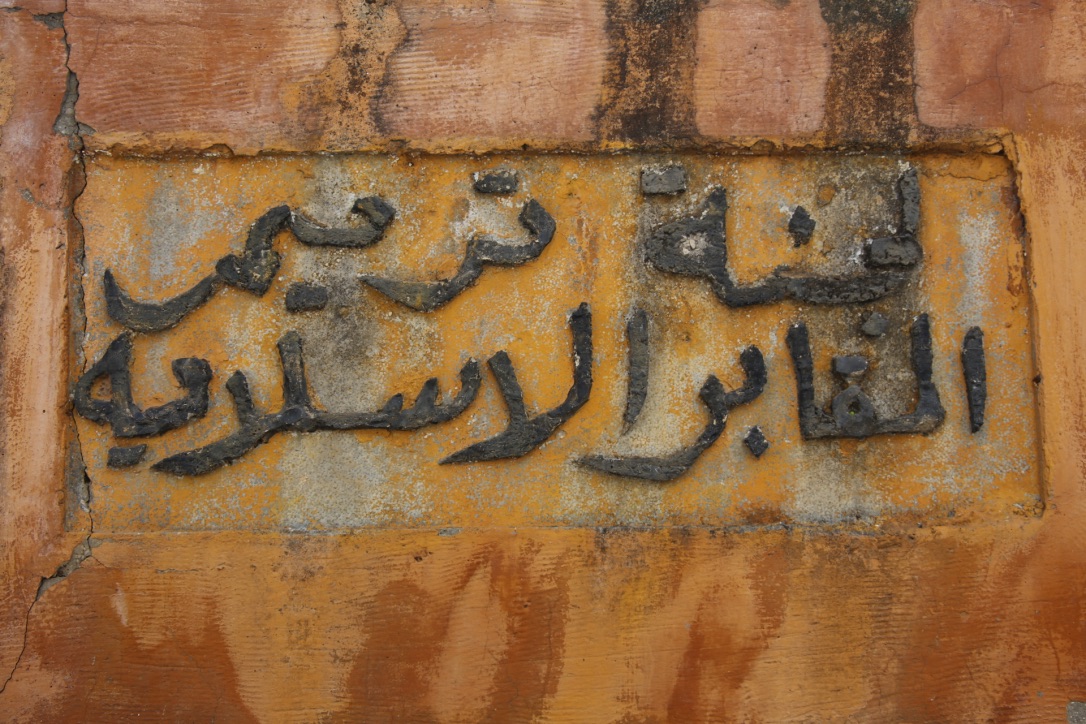 لجنة ترميم
المقابر الاسلامية